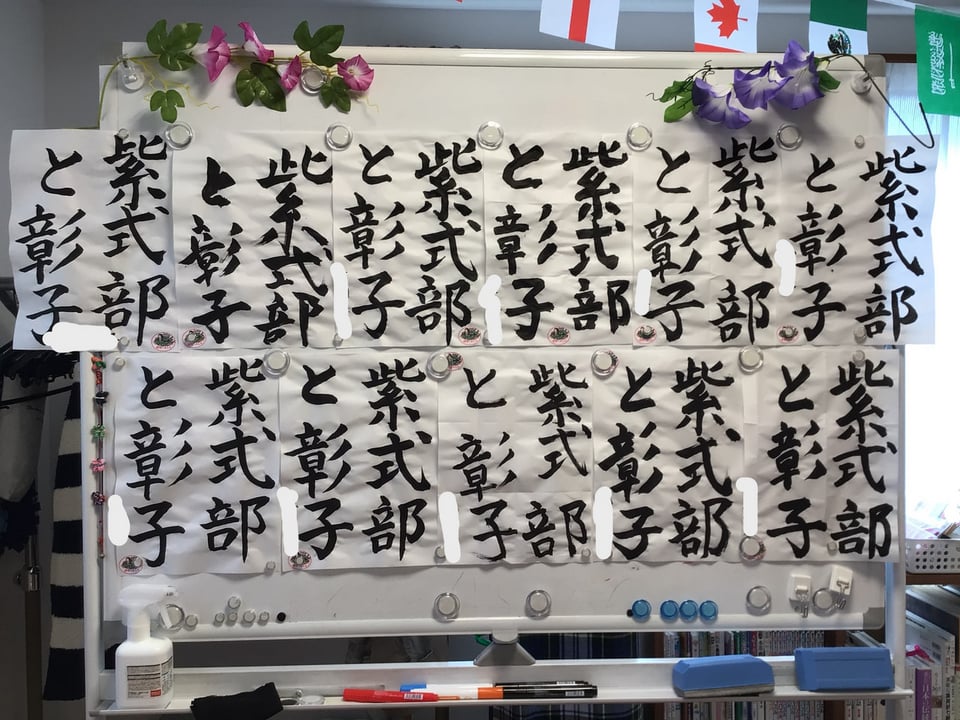 紫式部
と彰子
紫式部
と彰子
紫式部
と彰子
紫式部
と彰子
紫式部
と彰子
紫式部
と彰子
紫式部
と彰子
紫式部
と彰子
紫式部
と彰子
紫式部
と彰子
紫式部
と彰子